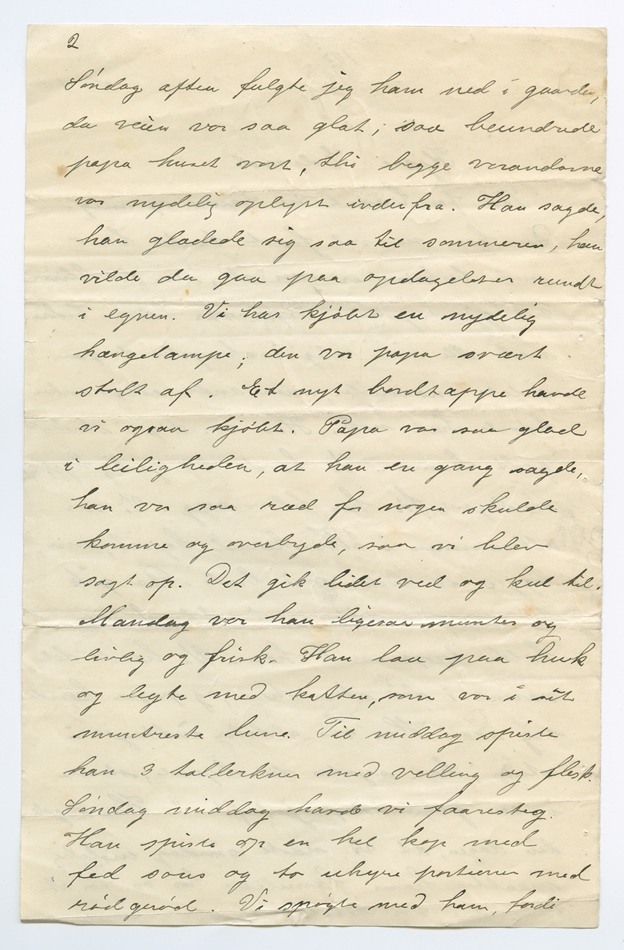 2
Søndag aften fulgte jeg ham ned i gaarden,
da veien var saa glat; saa beundrede
papa huset vort, thi begge verandaerne
var nydelig oplyst indenfra. Han sagde,
han glædede sig saa til sommeren, han
vilde da gaa paa opdagelser rundt
i egnen. Vi har kjøbt en nydelig
hængelampe; den var papa svært
stolt af. Et nyt bordtæppe havde
vi ogsaa kjøbt. Papa var saa glad
i leiligheden, at han en gang sagde,
han var saa ræd for nogen skulde
komme og overbyde, saa vi blev
sagt op. Det gik lidet ved og kul til.
Mandag var han ligesaa munter og
livlig og frisk. Han laa paa huk
og legte med katten, som var i sit
muntreste lune. Til middag spiste
han 3 tallerkner med velling og flesk.
Søndag middag havde vi faaresteg.
Han spiste op en hel kop med
fed saus og to uhyre portioner med
rødgrød. Vi spøgte med ham, fordi